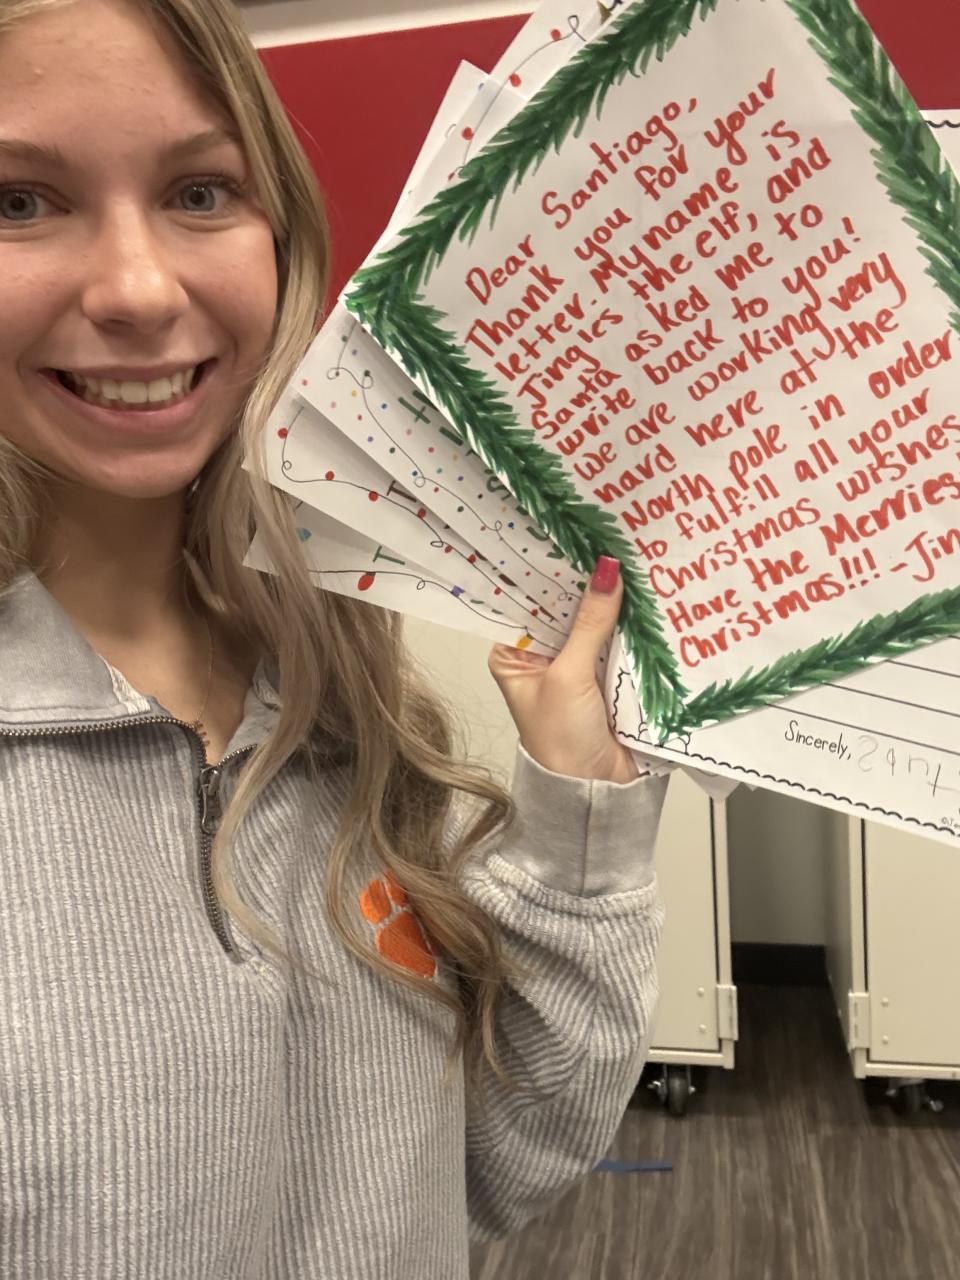 Dear Santiago,
Thank you for your
letter. My name is
Jingles the elf, and
Santa asked me to
write back to you!
We are working very
hard here at the
North pole in order
to fulfill all your
Christmas wishes
Have the Merries
Christmas!!! -Jin
Sincerely,